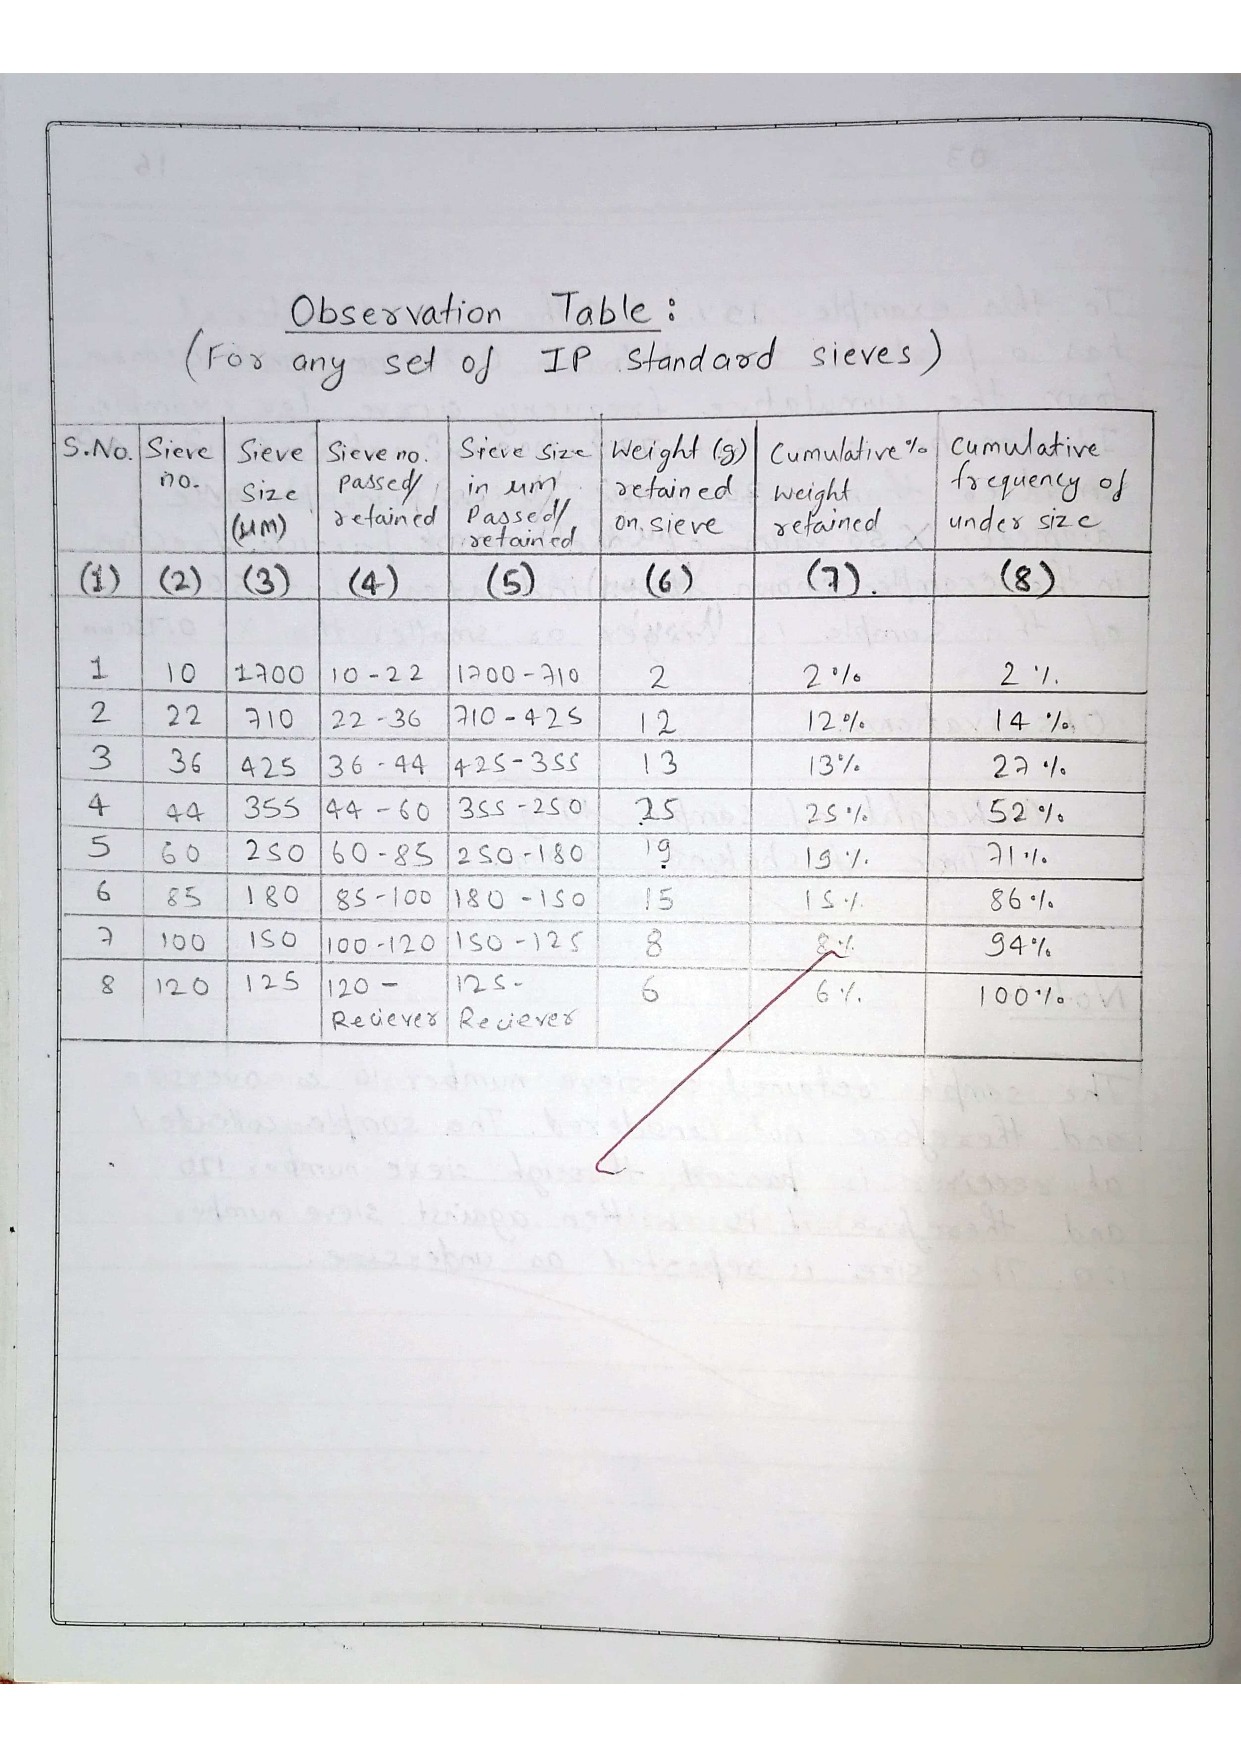 Observation Table:
(For any set of IP standard sieves)
S.No. Sieve no. Sieve Size (μm) Sieve no. passed/ retained Sieve Size in μm Passed/ retained Weight (g) retained on sieve Cumulative % weight retained Cumulative frequency of under size
(1) (2) (3) (4) (5) (6) (7). (8)
1 10 1700 10-22 1700-710 2 2% 2%
2 22 710 22-36 710-425 12 12% 14%
3 36 425 36-44 425-355 13 13% 27%
4 44 355 44-60 355-250 25 25% 52%
5 60 250 60-85 250-180 19 19% 71%
6 85 180 85-100 180-150 15 15% 86%
7 100 150 100-120 150-125 8 8% 94%
8 120 125 120- Reciever 125- Reciever 6 6% 100%